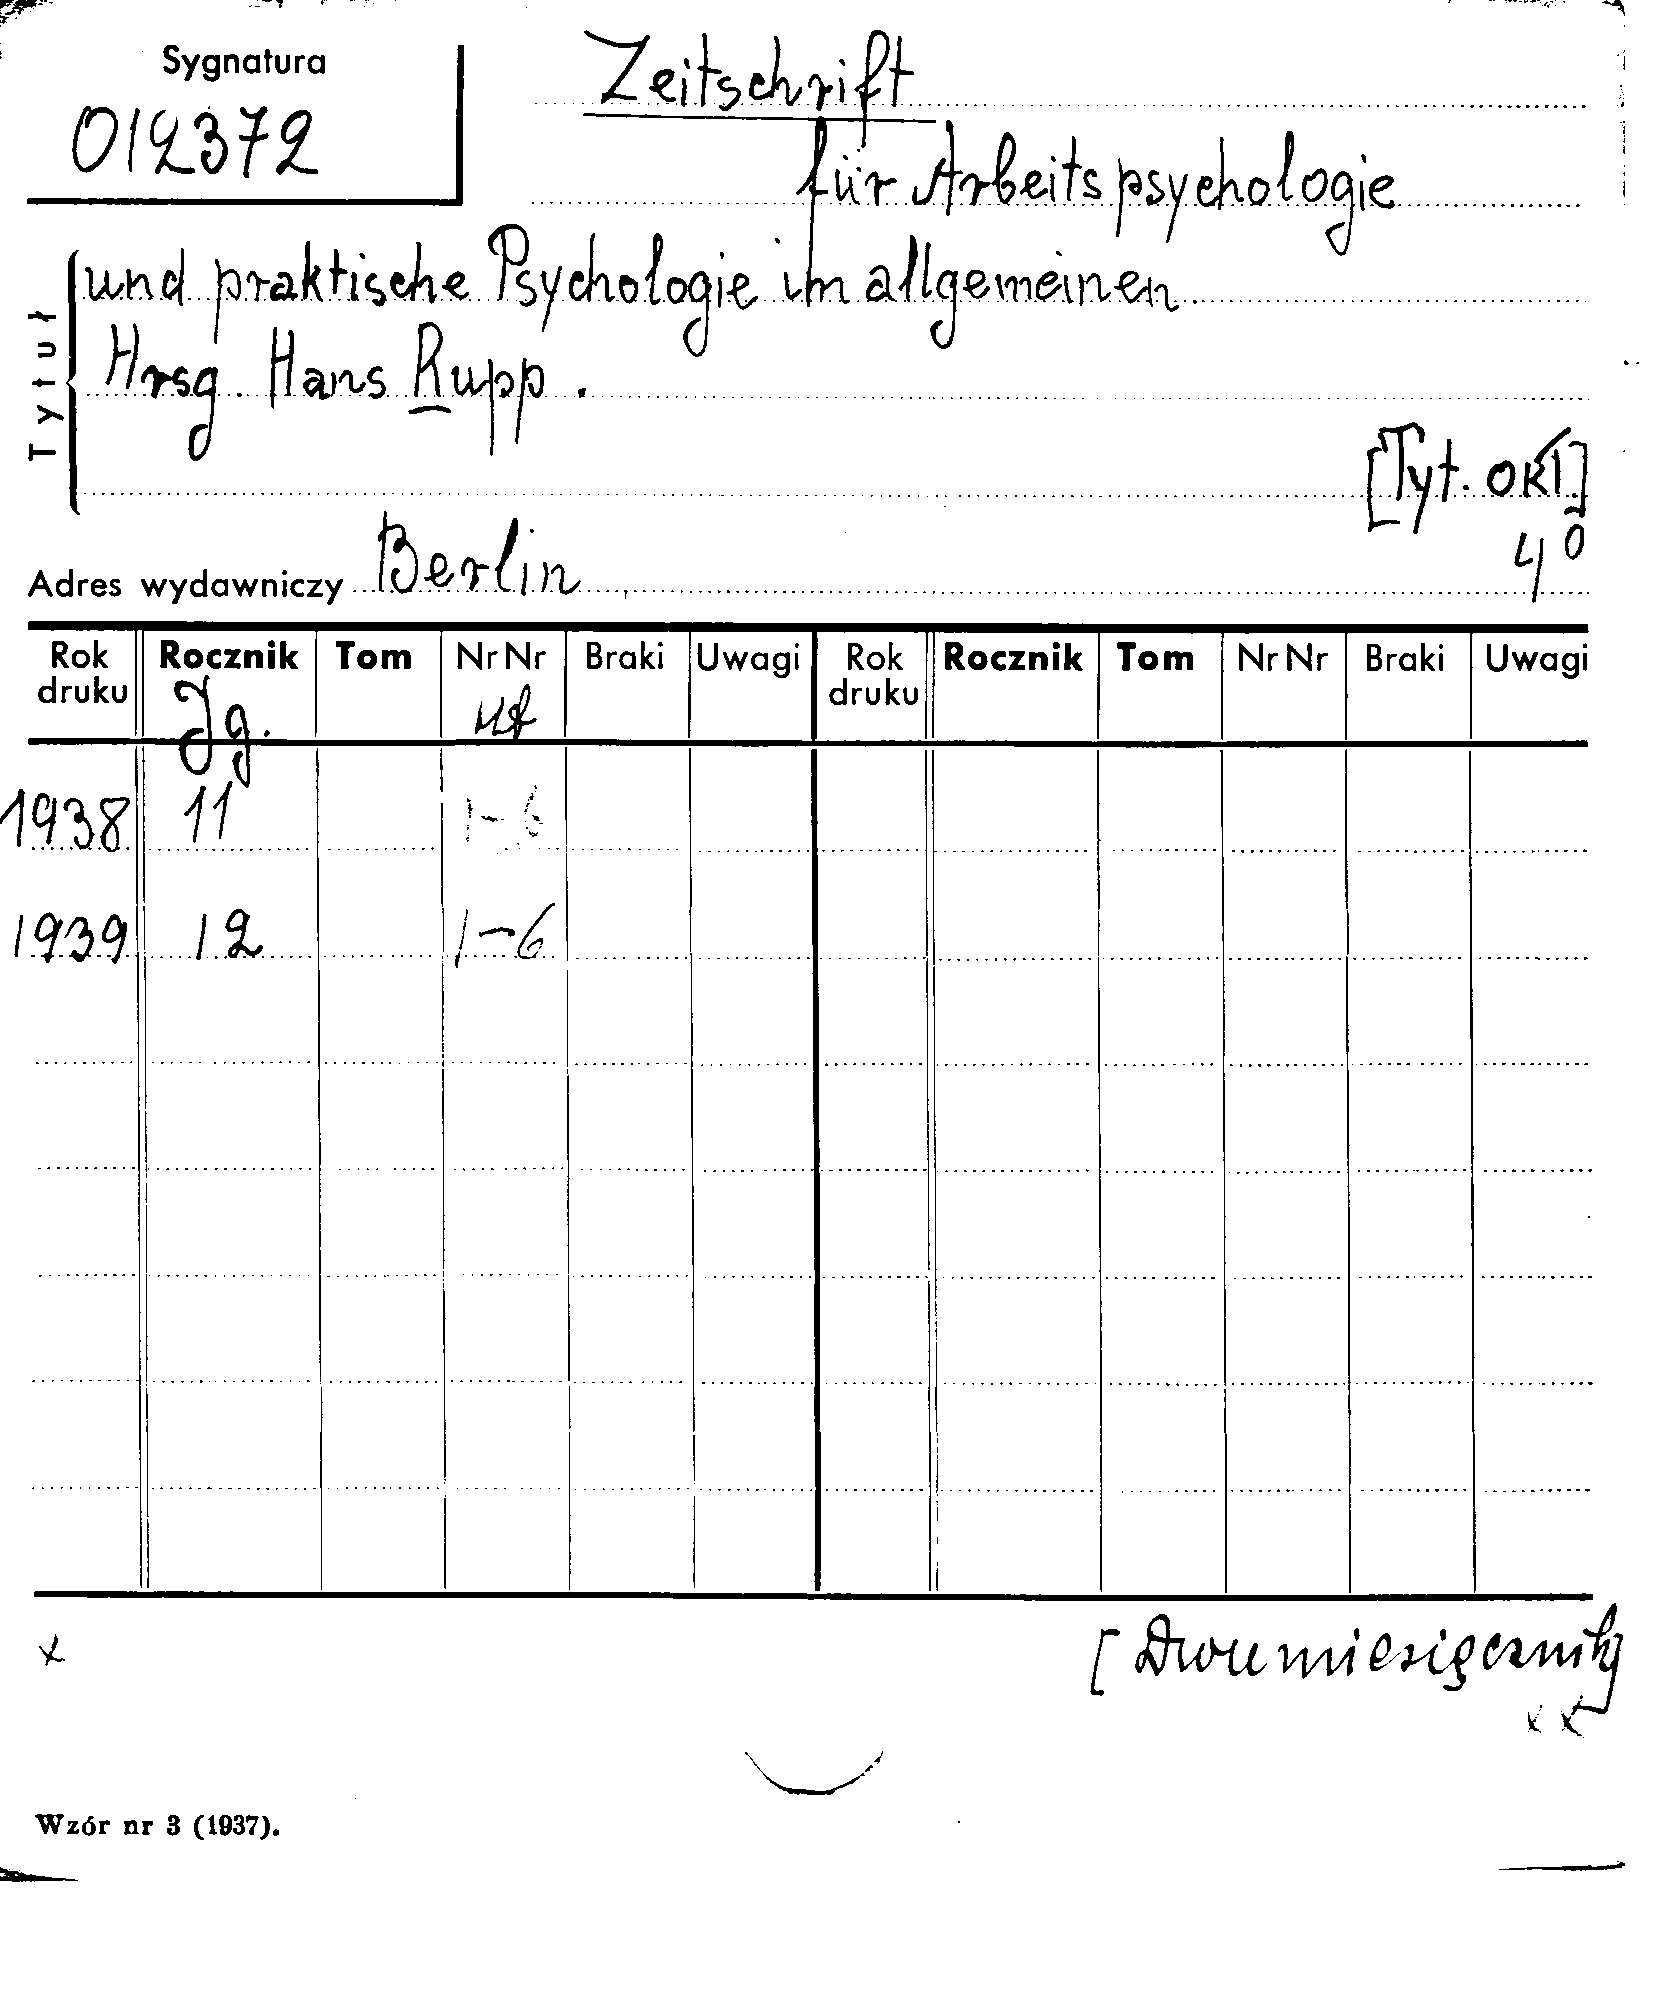 Sygnatura
012372
Zeitschrift
für Arbeitspsychologie
und praktische Psychologie im allgemeinen
Hrsg. Hans Rupp.
Tytuł
[Tyt. okł.]
4⁰
Adres wydawniczy Berlin
Rok druku Rocznik Tom Nr Nr Braki Uwagi Rok druku Rocznik Tom Nr Nr Braki Uwagi
Jg.
1938 11 1-6
1939 12 1-6
x [Dwumiesięcznik]
x x
Wzór nr 3 (1937).